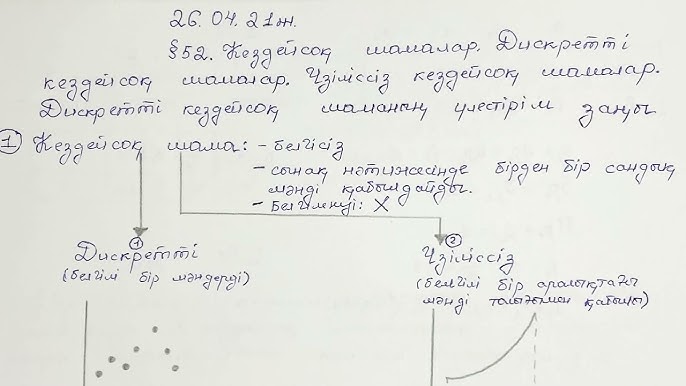 26.04.21ж.
§52. Кездейсоқ шамалар. Дискретті
кездейсоқ шамалар. Үзіліссіз кездейсоқ шамалар.
Дискретті кездейсоқ шаманың үлестірім заңы
1 Кездейсоқ шама: - белгісіз
- сынақ нәтижесінде бірден бір сандық
мәнді қабылдайды.
- Белгіленуі: X
1 2
Дискретті Үзіліссіз
(белгілі бір мәндерді) (белгілі бір аралықтағы
мәнді толығымен қабылд)